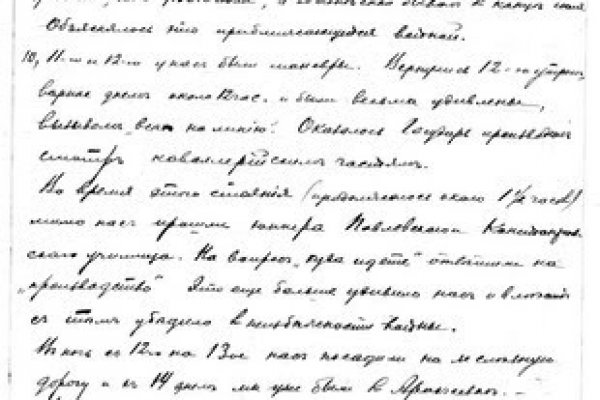 Объяснялось это приближающейся войной.
10, 11-го и 12-го у нас были маневры. Вернулись 12-го утром,
вернее днем около 12 час. и были весьма удивлены,
вызовом "всех на линию". Оказалось Государь производит
смотр кавалерийским частям.
Во время этого стояния (продолжалось около 1½ часов)
мимо нас прошли юнкера Павловского Константинов
ского училища. На вопрос "куда идете" ответили на
"производство" Это еще больше удивило нас и
с тем убедило в неизбежности войны.
В ночь с 12го на 13ое нас посадили на железную
дорогу и 14 днем мы уже были в